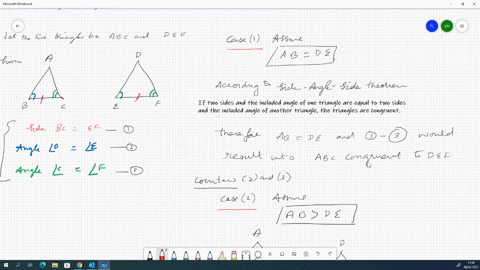 Microsoft Whiteboard
Let the two triangle be ABC and DEF
A
B C
D
E F
Side BC = EF — ①
Angle ∠E — ②
Angle ∠C = ∠F — ③
Case (1) Assume
AB = DE
According to side-Angle-side theorem
If two sides and the included angle of one triangle are equal to two sides
and the included angle of another triangle, the triangles are congruent.
therefore AB = DE and ① - ③ would
result into ABC congruent to DEF
(2) and (3)
Case (2) Assume
AB > DE
A
D